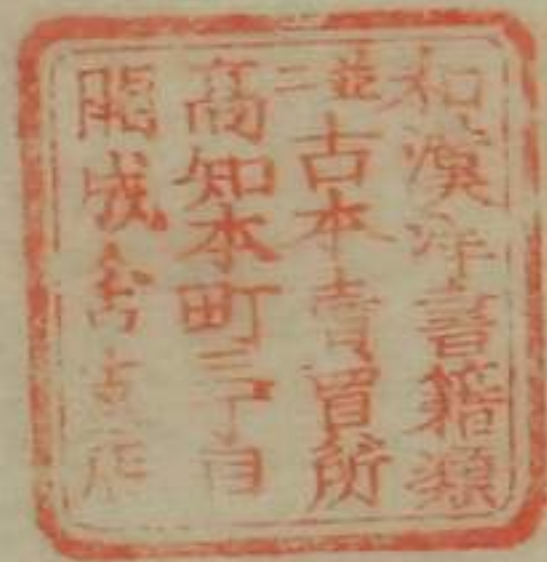 和漢洋書籍類
並ニ古本賣買所
高知本町三丁目
開成舎支店